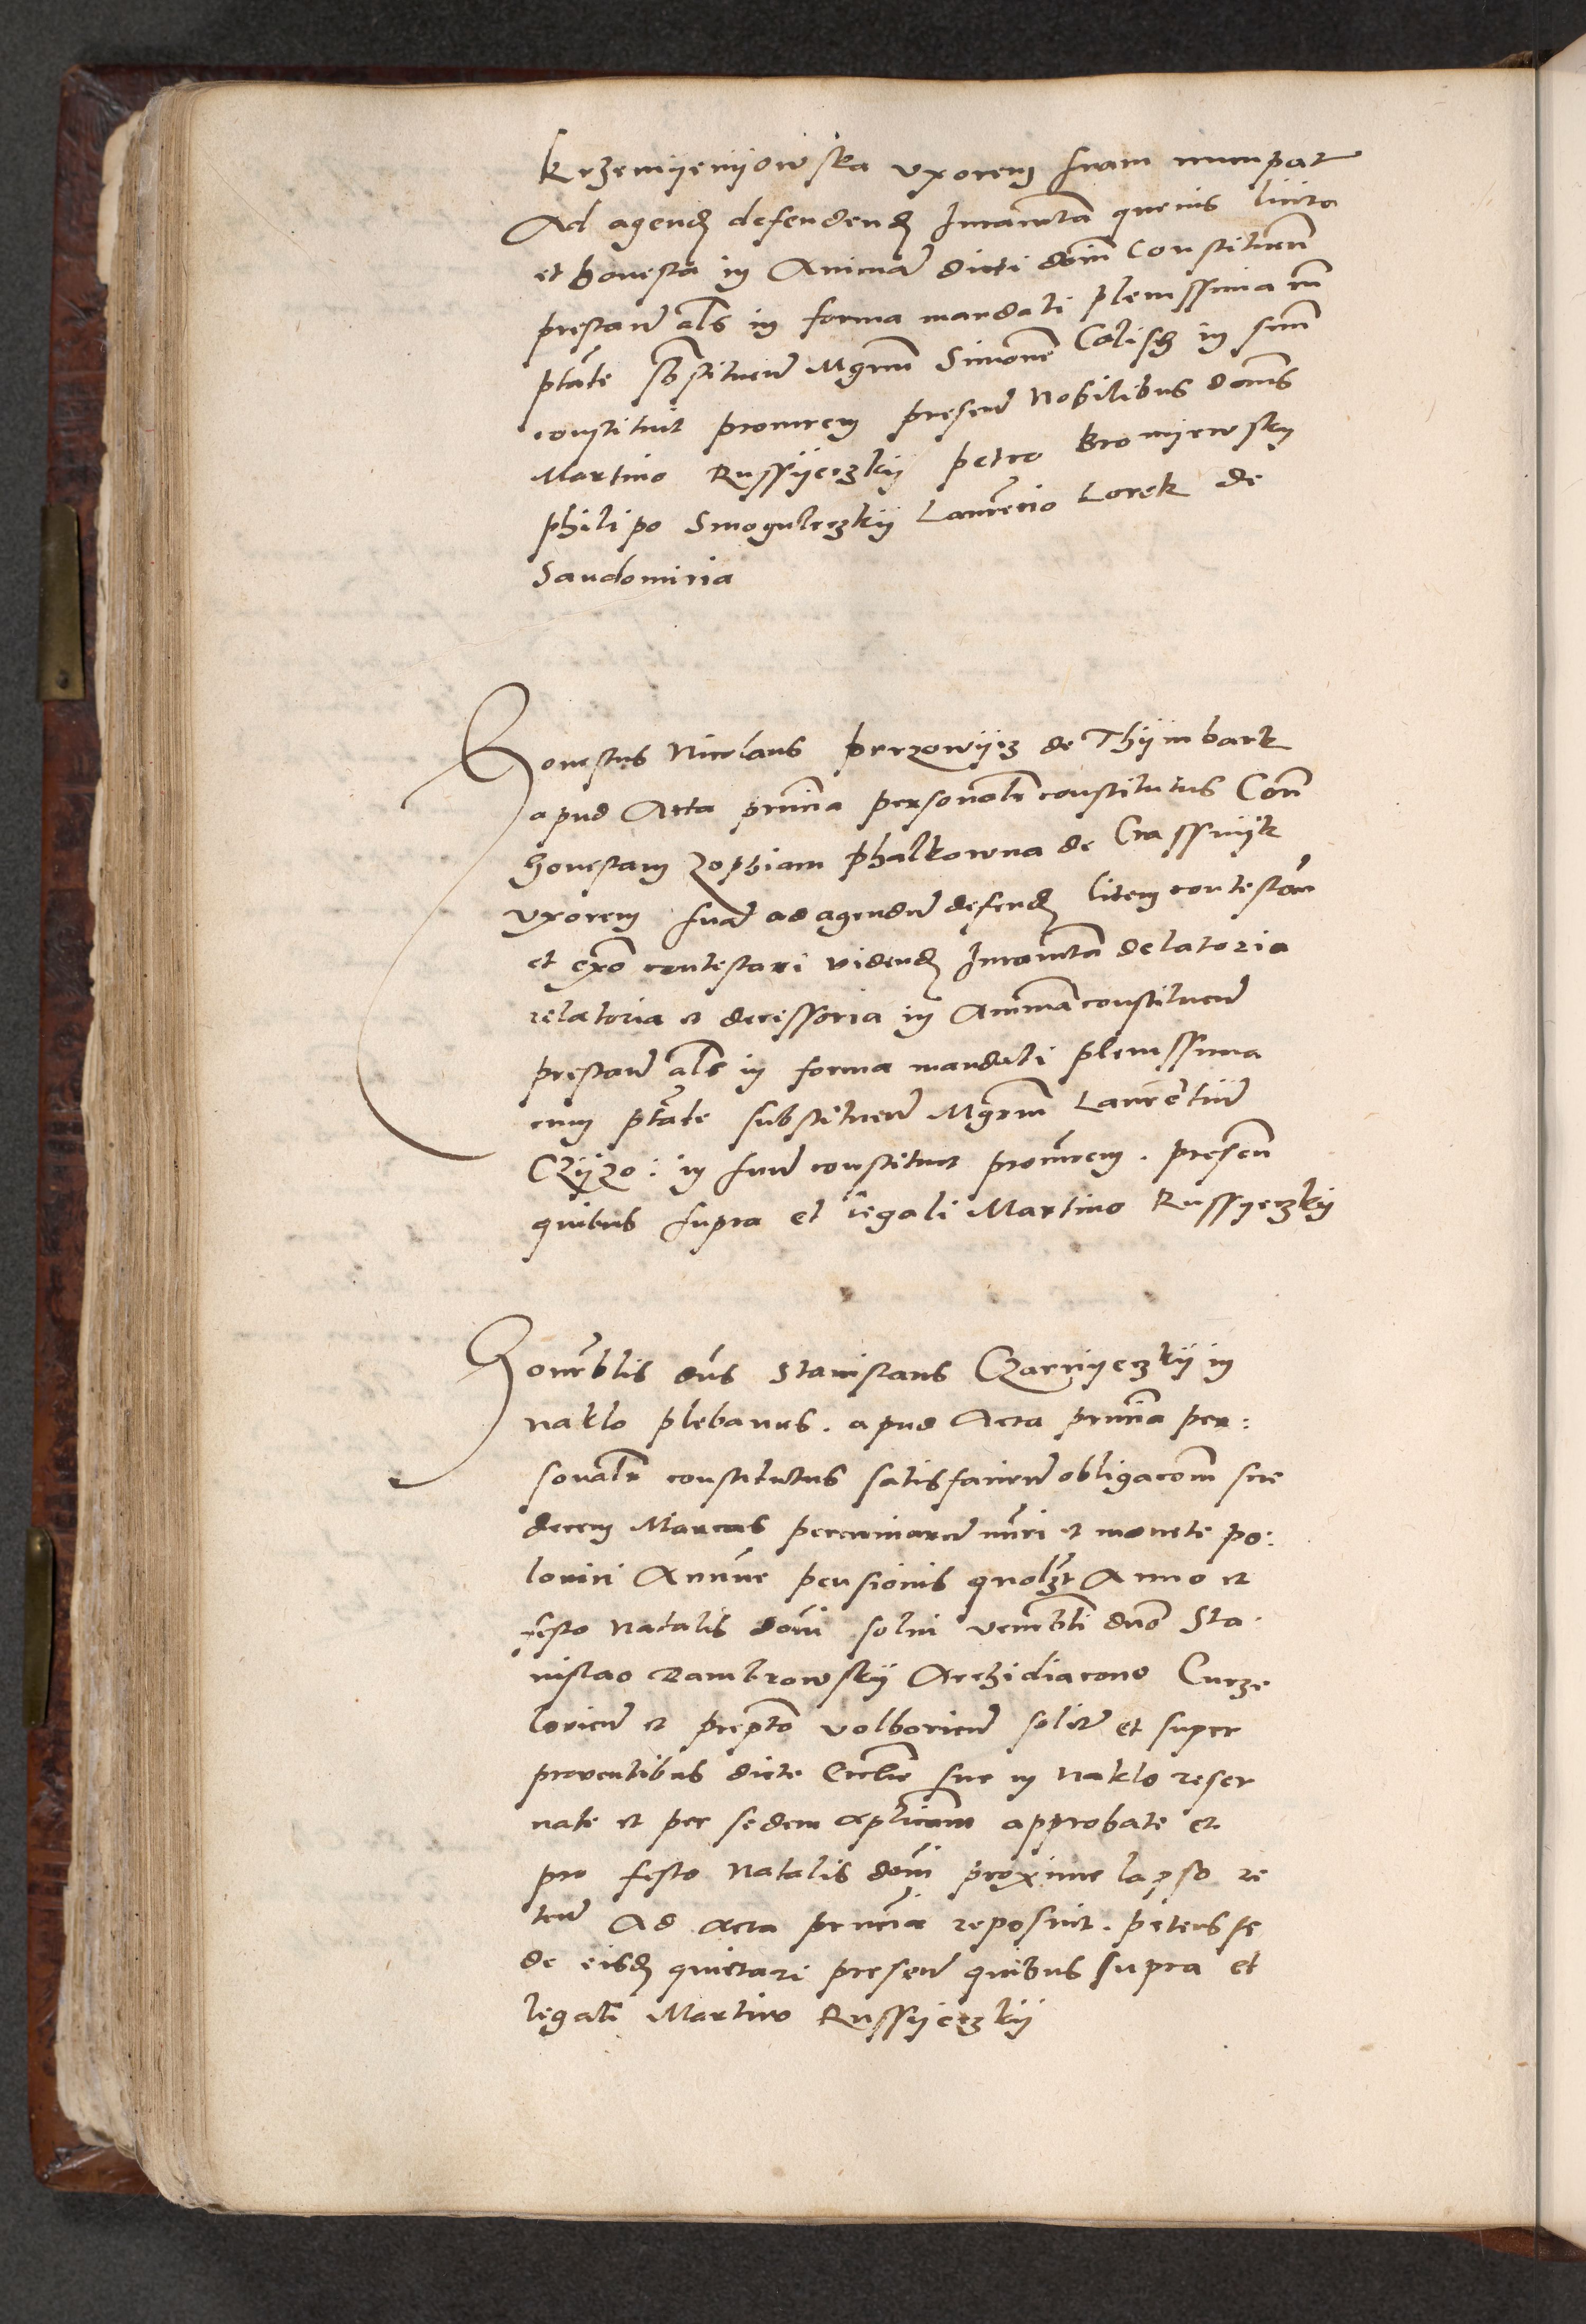 Krzemyenyowska vxorem suam nuncpat
Ad agend defendend Iuramta quevis licita
et honesta in Animā dicti dom̄ Constituen̄
prestand als in forma mandati plenissima cū
ptāte sbstituend Mgrm̄ Simonē Calisz in suū
constituit procurem presend Nobilibus domīs
Martino Russyeczky petro kromyewsky
philipo Smoguleczky Laurēcio Lorek de
Sandomiria
Honestus Nicolaus przowycz de Thymbark
apud Acta prūcia personalr constitutus Con̄
honestam Zophiam phalkowna de Crassnyk
vxorem suā ad agendū defend litem contestan̄
et exō contestari vidend Iuramta delatoria
relatoria et decissoria in Animā constituend
prestand als in forma mandati plenissima
cum ptāte substituend Mgrm̄ Laurētiū
Czyzo: in suū constituit procurem. presen̄
quibus supra et legali Martino Russyeczky
Honerblis dn̄s Stanislaus Czarnyeczky in
naklo plebanus. apud Acta prūcia per:
sonalr constitutus satisfaciend obligacom̄ sue
decem Marcas pecuniarū nūri et monete po:
lonici Annue pensionis quolzt Anno et
festo Natalis dom̄i solui venerbli dn̄o Sta.
nislao Dambrowsky Archidiacono Curze
lovien̄ et prepto volborien̄ solitū et super
proventibus dicte Ecclie sue in naklo reser
uate et per sedem aplicam approbate et
pro festo Natalis dom̄i proxime lapso re
tend Ad acta prūcia reposuit. petens se
de eisd quietari presend quibus supra et
legali Martino Russyeczky